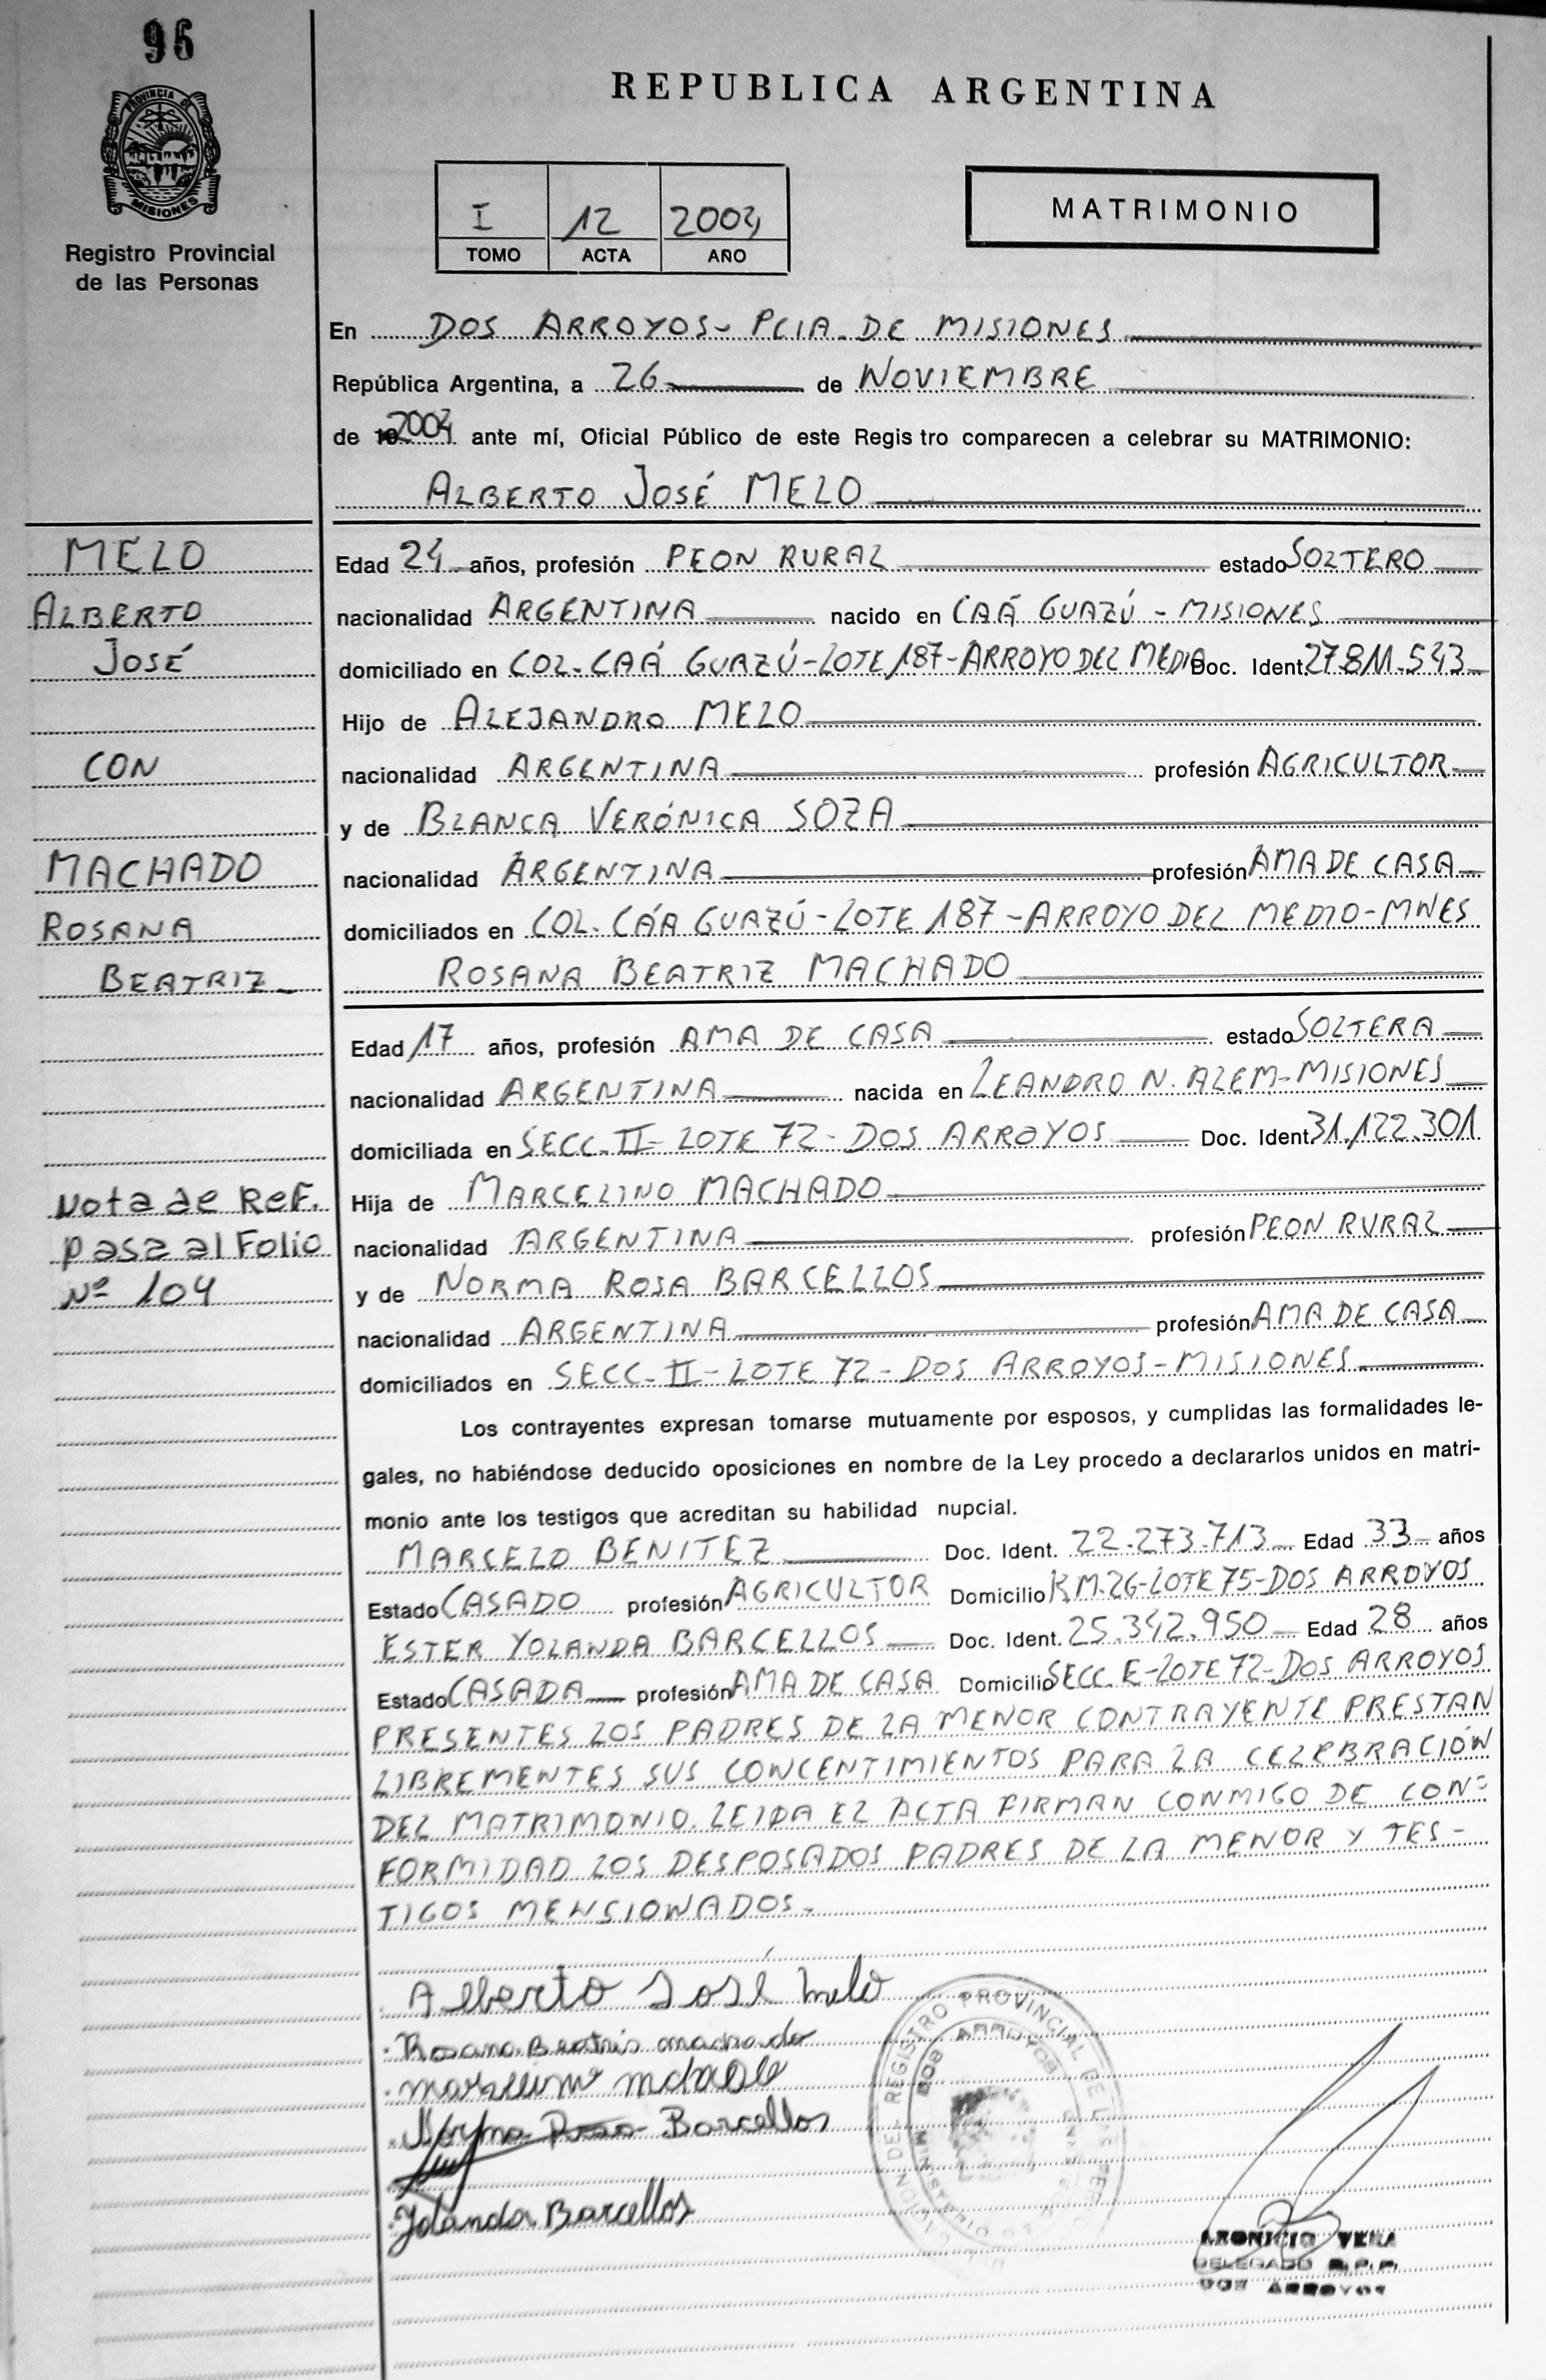 96
PROVINCIA DE
MISIONES
Registro Provincial
de las Personas
REPUBLICA ARGENTINA
I 12 2004
TOMO ACTA AÑO
MATRIMONIO
En DOS ARROYOS - PCIA. DE MISIONES
República Argentina, a 26 de NOVIEMBRE
de 2004 ante mí, Oficial Público de este Regis tro comparecen a celebrar su MATRIMONIO:
ALBERTO JOSÉ MELO
MELO
ALBERTO
JOSÉ
CON
MACHADO
ROSANA
BEATRIZ
Nota de Ref.
pasa al Folio
Nº 104
Edad 24 años, profesión PEON RURAL estado SOLTERO
nacionalidad ARGENTINA nacido en CAÁ GUAZÚ - MISIONES
domiciliado en COL. CAÁ GUAZÚ - LOTE 187 - ARROYO DEL MEDIO Doc. Ident. 27.811.543
Hijo de ALEJANDRO MELO
nacionalidad ARGENTINA profesión AGRICULTOR
y de BLANCA VERÓNICA SOZA
nacionalidad ARGENTINA profesión AMA DE CASA
domiciliados en COL. CÁA GUAZÚ - LOTE 187 - ARROYO DEL MEDIO - MNES
ROSANA BEATRIZ MACHADO
Edad 17 años, profesión AMA DE CASA estado SOLTERA
nacionalidad ARGENTINA nacida en LEANDRO N. ALEM - MISIONES
domiciliada en SECC. II - LOTE 72 - DOS ARROYOS Doc. Ident. 31.122.301
Hija de MARCELINO MACHADO
nacionalidad ARGENTINA profesión PEON RURAL
y de NORMA ROSA BARCELLOS
nacionalidad ARGENTINA profesión AMA DE CASA
domiciliados en SECC. II - LOTE 72 - DOS ARROYOS - MISIONES
Los contrayentes expresan tomarse mutuamente por esposos, y cumplidas las formalidades le-
gales, no habiéndose deducido oposiciones en nombre de la Ley procedo a declararlos unidos en matri-
monio ante los testigos que acreditan su habilidad nupcial.
MARCELO BENITEZ Doc. Ident. 22.273.713 Edad 33 años
Estado CASADO profesión AGRICULTOR Domicilio KM. 26 - LOTE 75 - DOS ARROYOS
ESTER YOLANDA BARCELLOS Doc. Ident. 25.342.950 Edad 28 años
Estado CASADA profesión AMA DE CASA Domicilio SECC. E - LOTE 72 - DOS ARROYOS
PRESENTES LOS PADRES DE LA MENOR CONTRAYENTE PRESTAN
LIBREMENTES SUS CONCENTIMIENTOS PARA LA CELEBRACIÓN
DEL MATRIMONIO. LEIDA EL ACTA FIRMAN CONMIGO DE CON-
FORMIDAD LOS DESPOSADOS PADRES DE LA MENOR Y TES-
TIGOS MENSIONADOS.
Alberto José Melo
Rosana Beatris machado
Norma Rosa Barcellos
Yolanda Barcellos
REGISTRO PROVINCIAL DE
DOS ARROYOS
LEONICIO VERA
DELEGADO R.P.P.
DOS ARROYOS